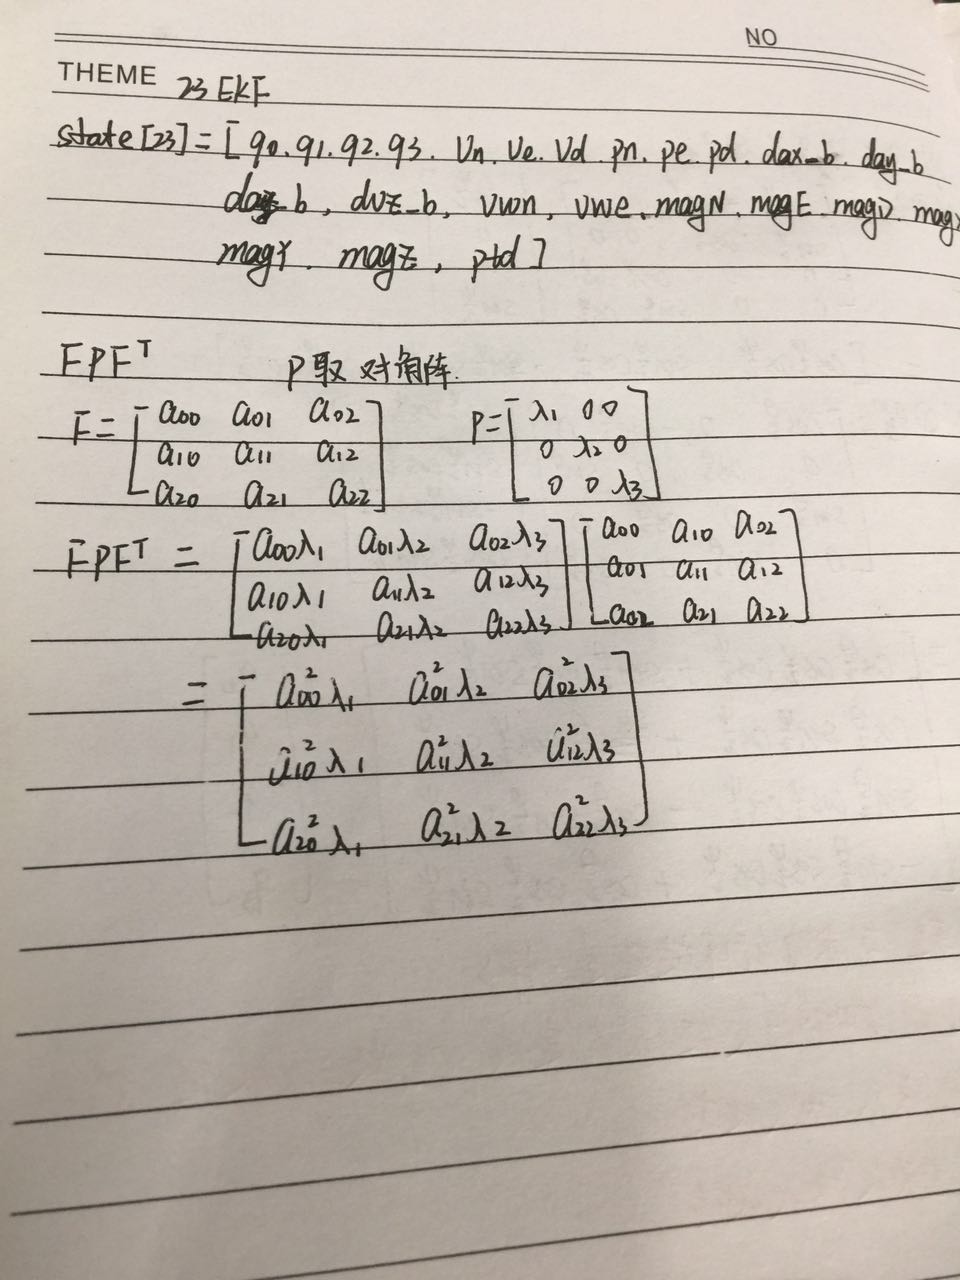 NO
THEME 23 EKF
state[23]=[ q0.q1.q2.q3. Vn.Ve.Vd.pn.pe.pd.dax_b.day_b
daz_b, dvz_b, vwn, vwe.magN.magE.magD.magX
magY. magZ, ptd]
FPFᵀ P取对角阵.
F=[a00 a01 a02 P=[λ1 0 0
a10 a11 a12 0 λ2 0
a20 a21 a22] 0 0 λ3]
FPFᵀ = [a00λ1 a01λ2 a02λ3][a00 a10 a02
a10λ1 a11λ2 a12λ3 a01 a11 a12
a20λ1 a21λ2 a22λ3] a02 a21 a22]
= [a00²λ1 a01²λ2 a02²λ3
a10²λ1 a11²λ2 a12²λ3
a20²λ1 a21²λ2 a22²λ3]